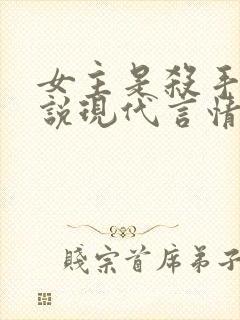 女主是殺手
說現代言情
賤宗首席弟子